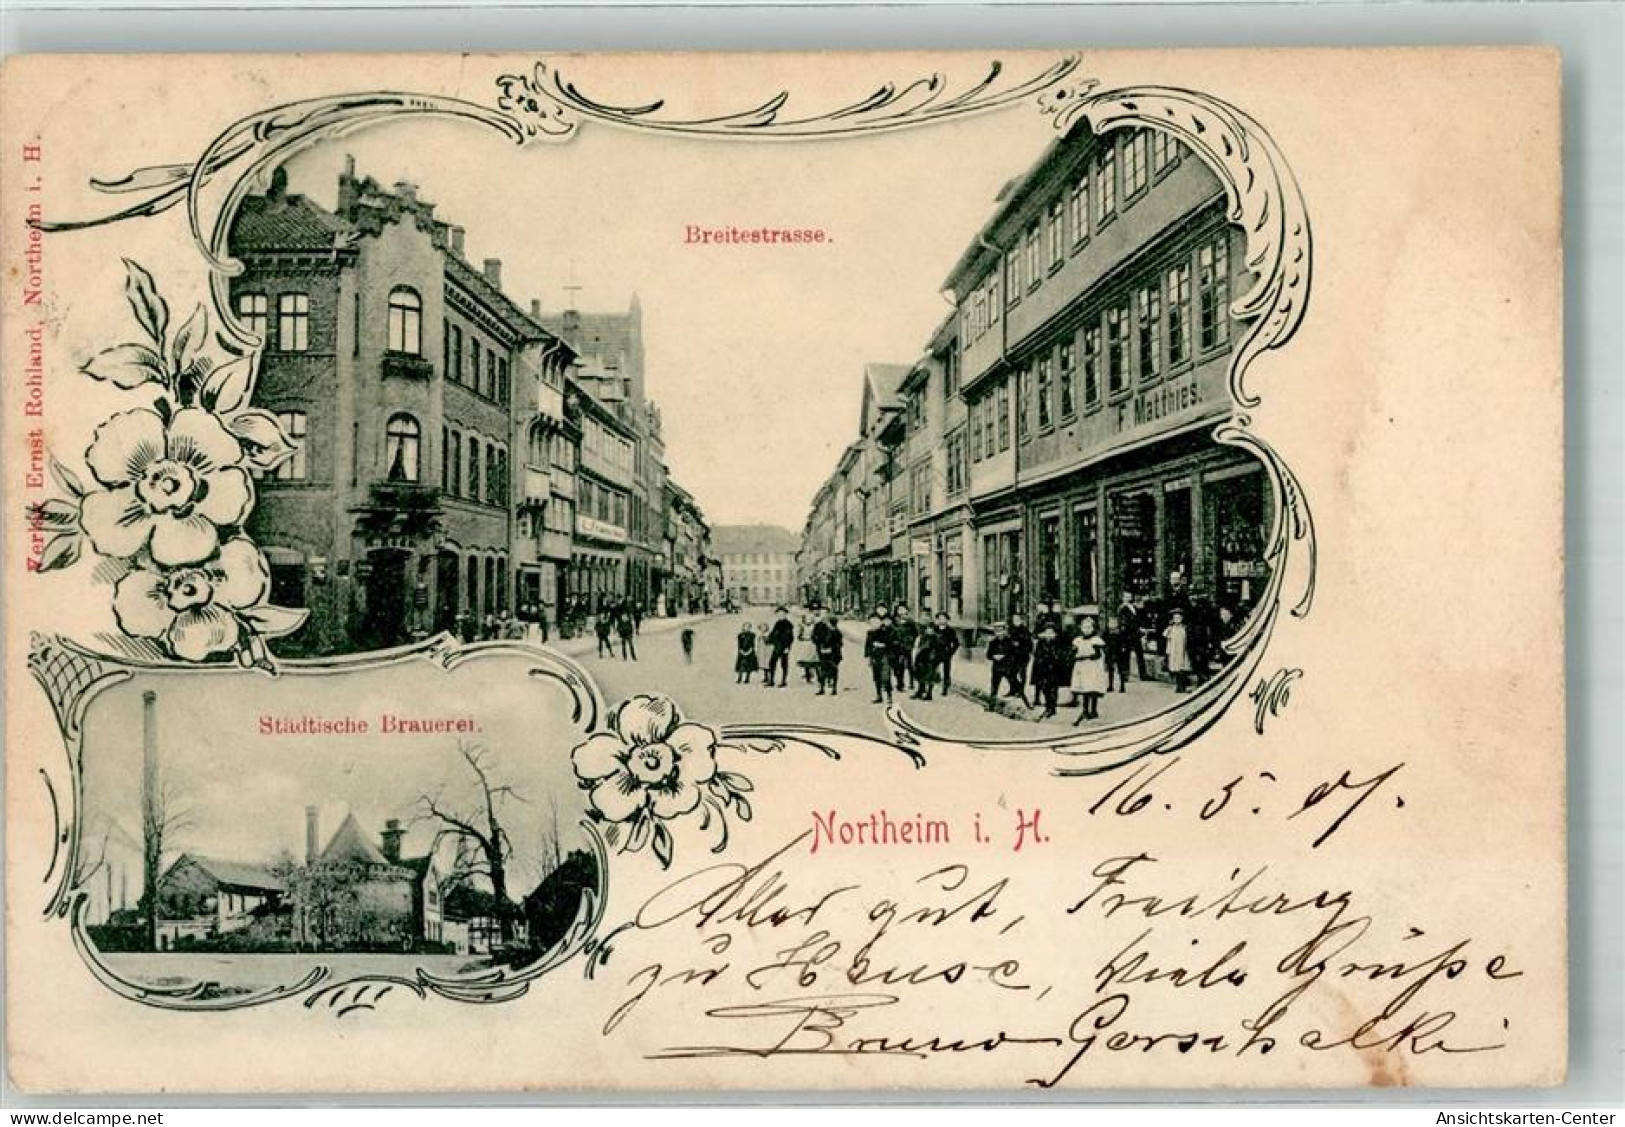 Verlag Ernst Rohland, Northeim i. H.
Breitestrasse.
F. Matthies.
Städtische Brauerei.
Northeim i. H.
16. 5. 01.
Alles gut, Freitag
zu Hause, Viele Grüße
Bruno Gorschalki
delcampe.net
Ansichtskarten-Center